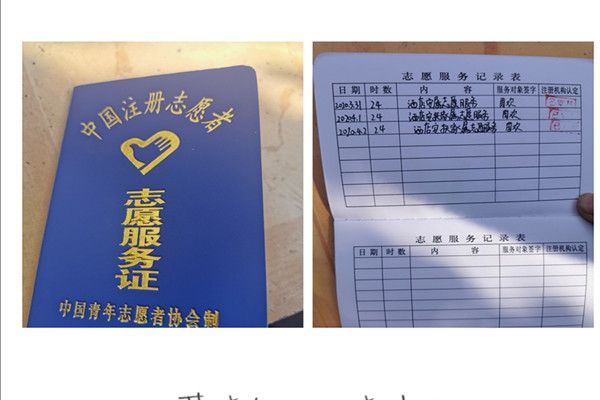 中国注册志愿者
志愿服务证
中国青年志愿者协会制
志愿服务记录表
日期 时数 内 容 服务对象签字 注册机构认定
2020.3.31 24 志愿服务
2020.4.1 24 志愿服务
2020.4.2 24 志愿服务
志愿服务记录表
日期 时数 内 容 服务对象签字 注册机构认定